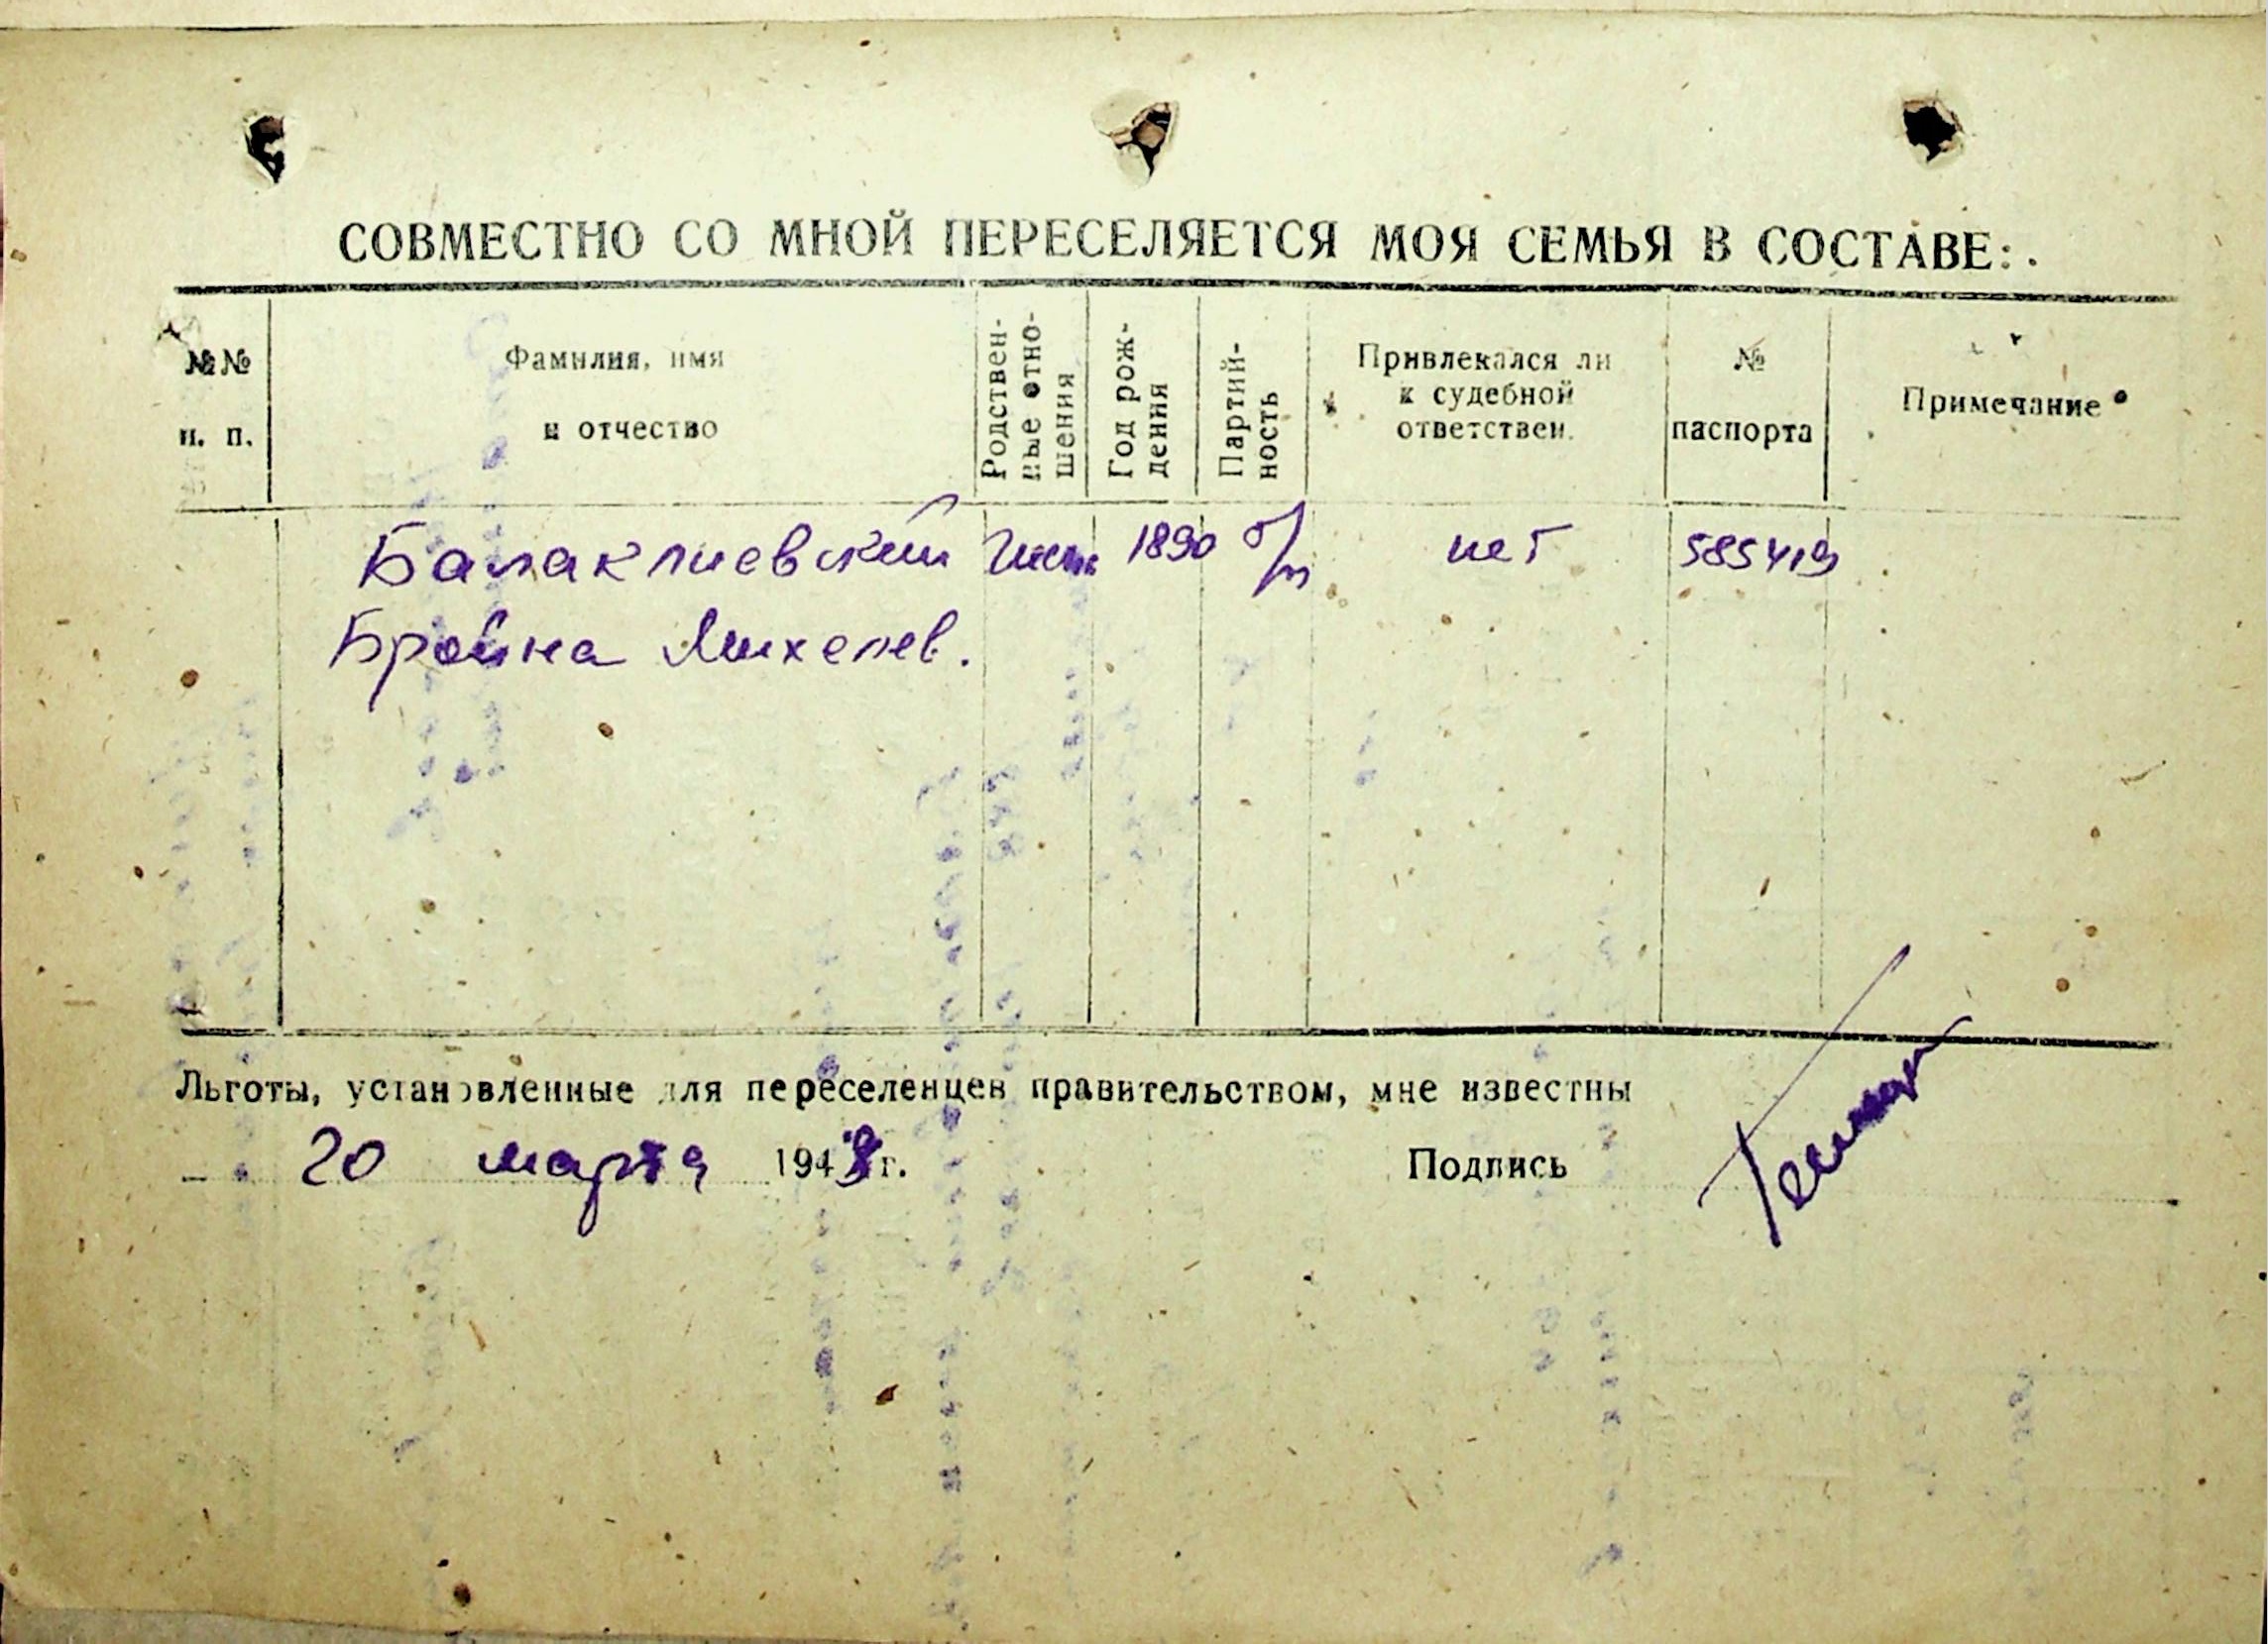 СОВМЕСТНО СО МНОЙ ПЕРЕСЕЛЯЕТСЯ МОЯ СЕМЬЯ В СОСТАВЕ:
№№ п. п.
Фамилия, имя и отчество
Родственные отношения
Год рождения
Партийность
Привлекался ли к судебной ответствен.
№ паспорта
Примечание
Балаклиевский 1890 б/п нет 585419
Бройна Михелев.
Льготы, установленные для переселенцев правительством, мне известны
20 марта 1948 г. Подпись